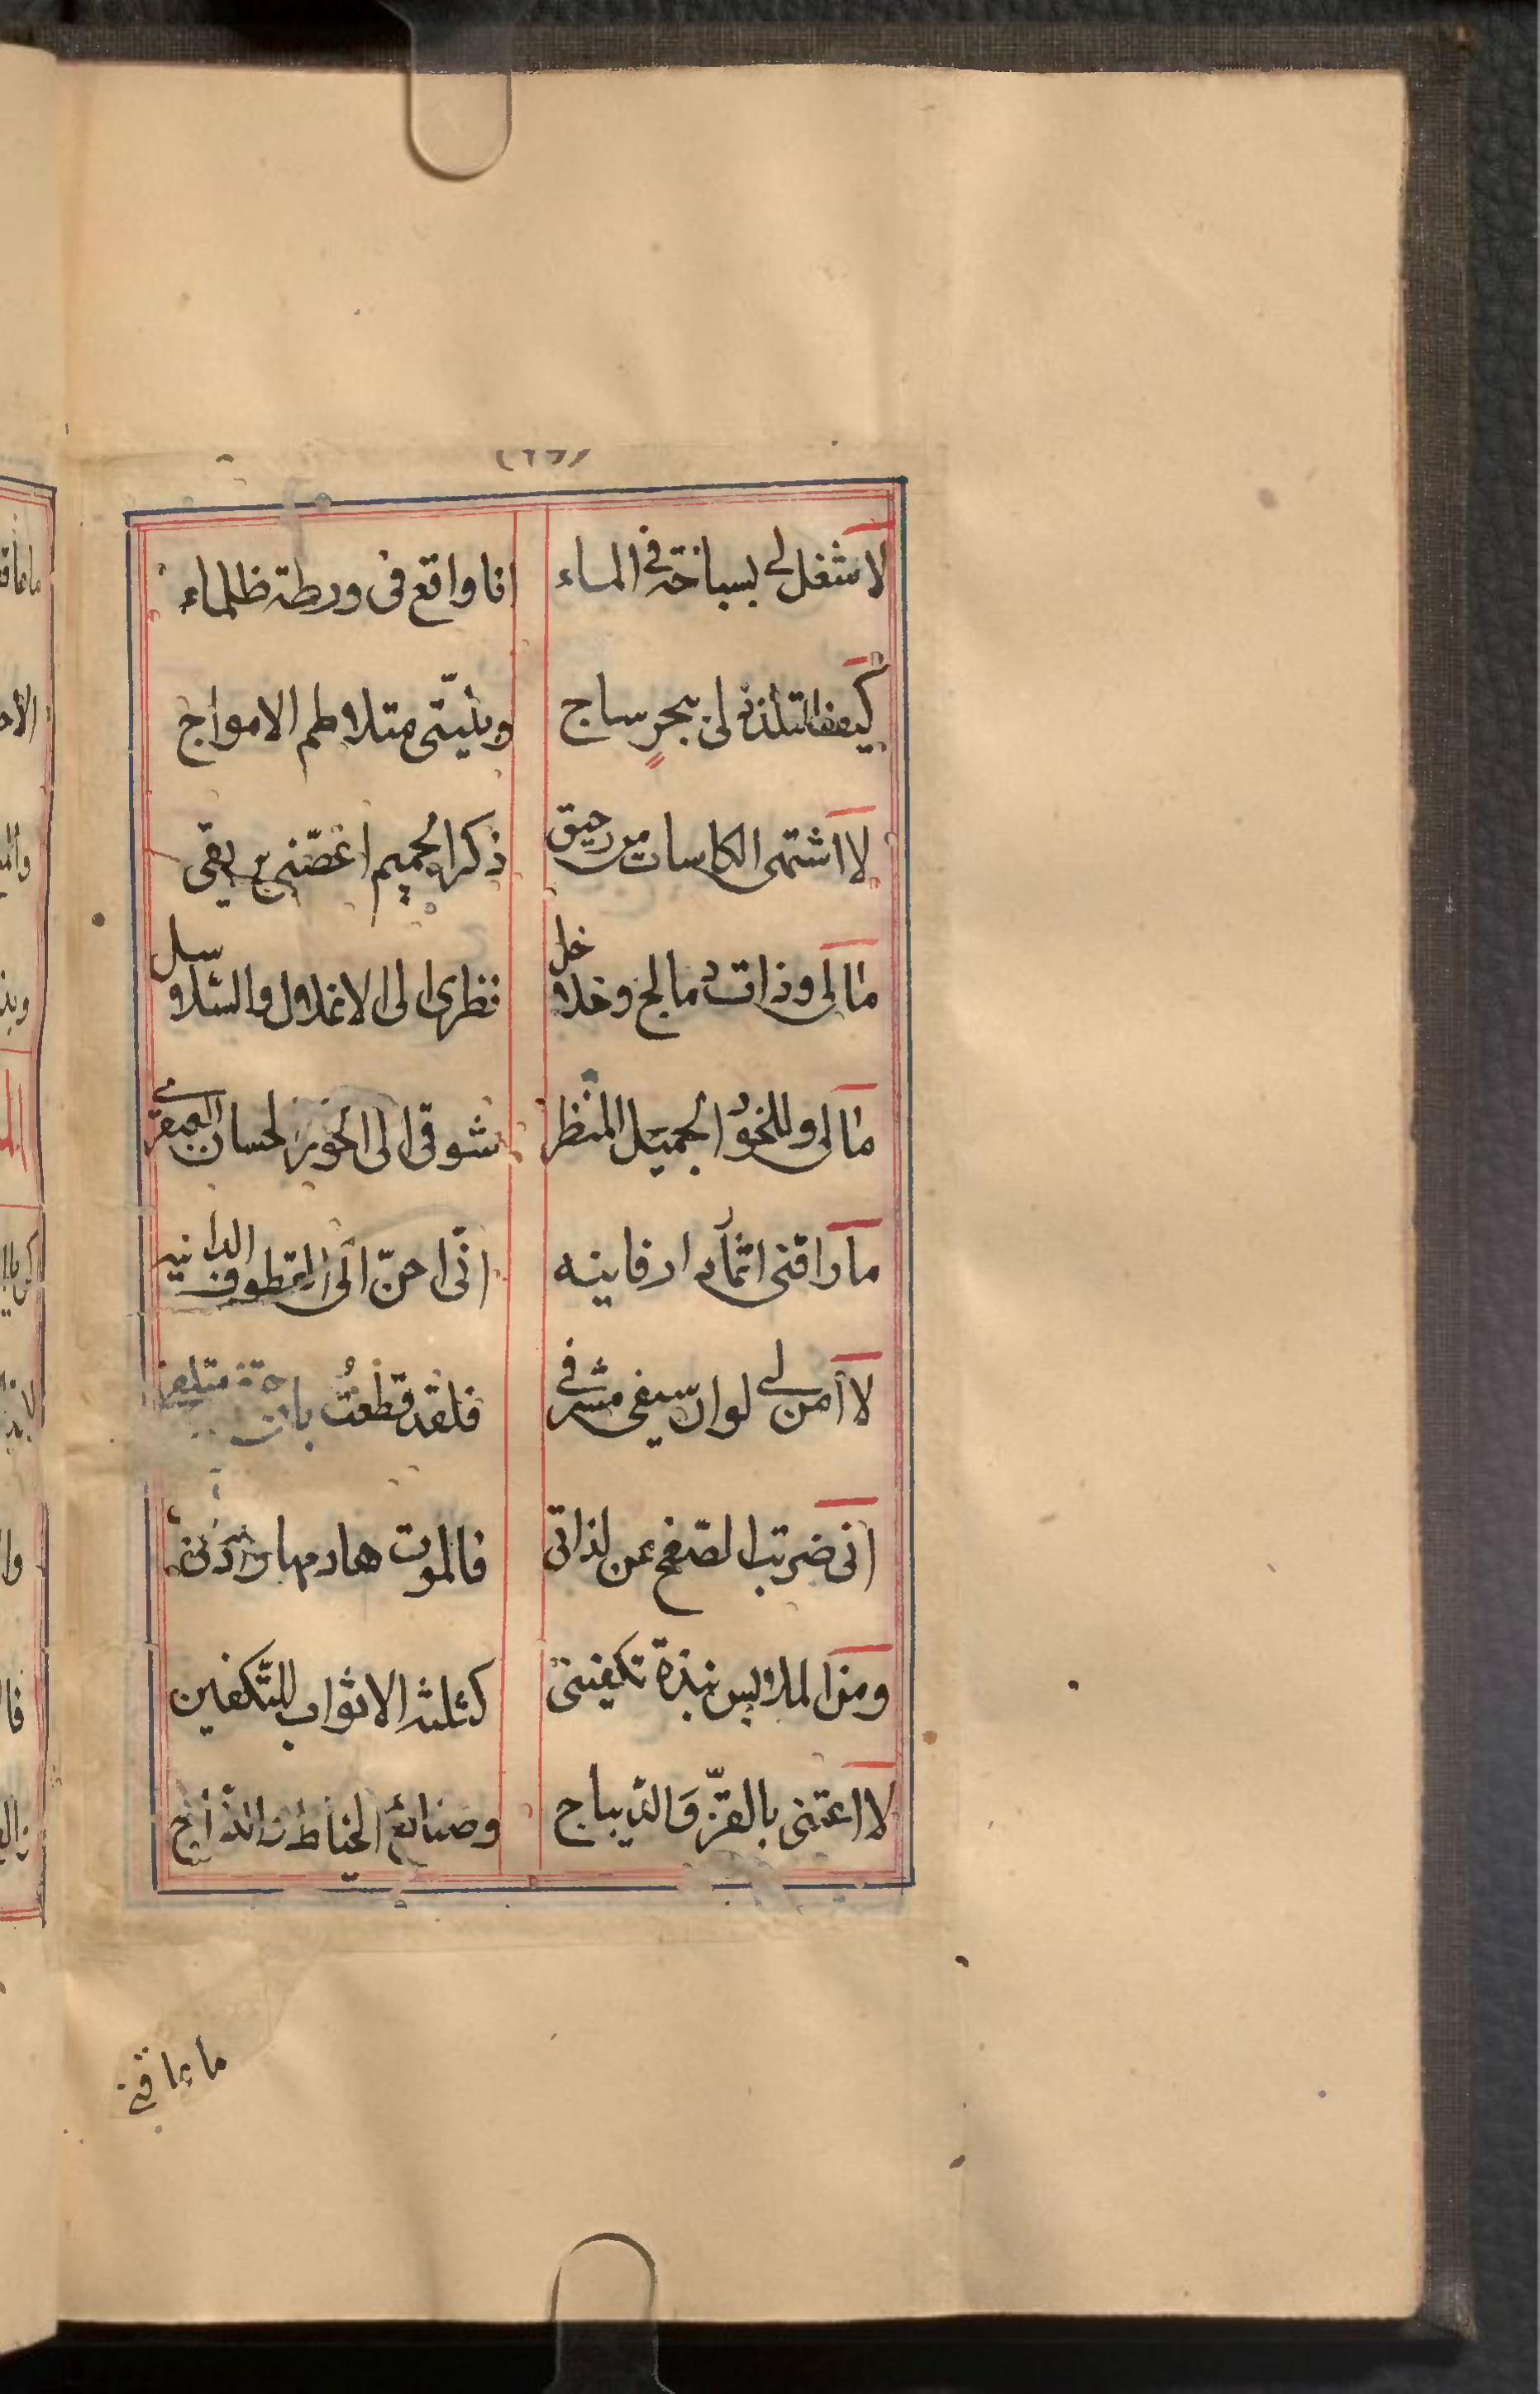 لا شغل لى بسباخة فى الماء انا واقع فى ورطة ظلماء
كيف التلذذ لى ببحرٍ ساج وبليّتى متلاطم الامواج
لا اشتهى الكاسات من رحيق ذكر الحميم اغصّنى بريقى
مالى وذات دمالج وخلاخل نظرى الى الاغلال والسلاسل
مالى وللخود الجميل المنظر شوقى الى الحور الحسان
ما راقنى اثمار ارفانيه انّى احنّ الى القطوف الدانيه
لا أمن لى لو ان سيفى مشرفى فلقد قطعتُ بان
انى ضربت الصفح عن لذاتى فالموت هادمها
ومن الملابس نبذة تكفينى كثلثة الاثواب للتكفين
لا اعتنى بالقزّ والديباج وصنائع الخياط
ما عاقنى